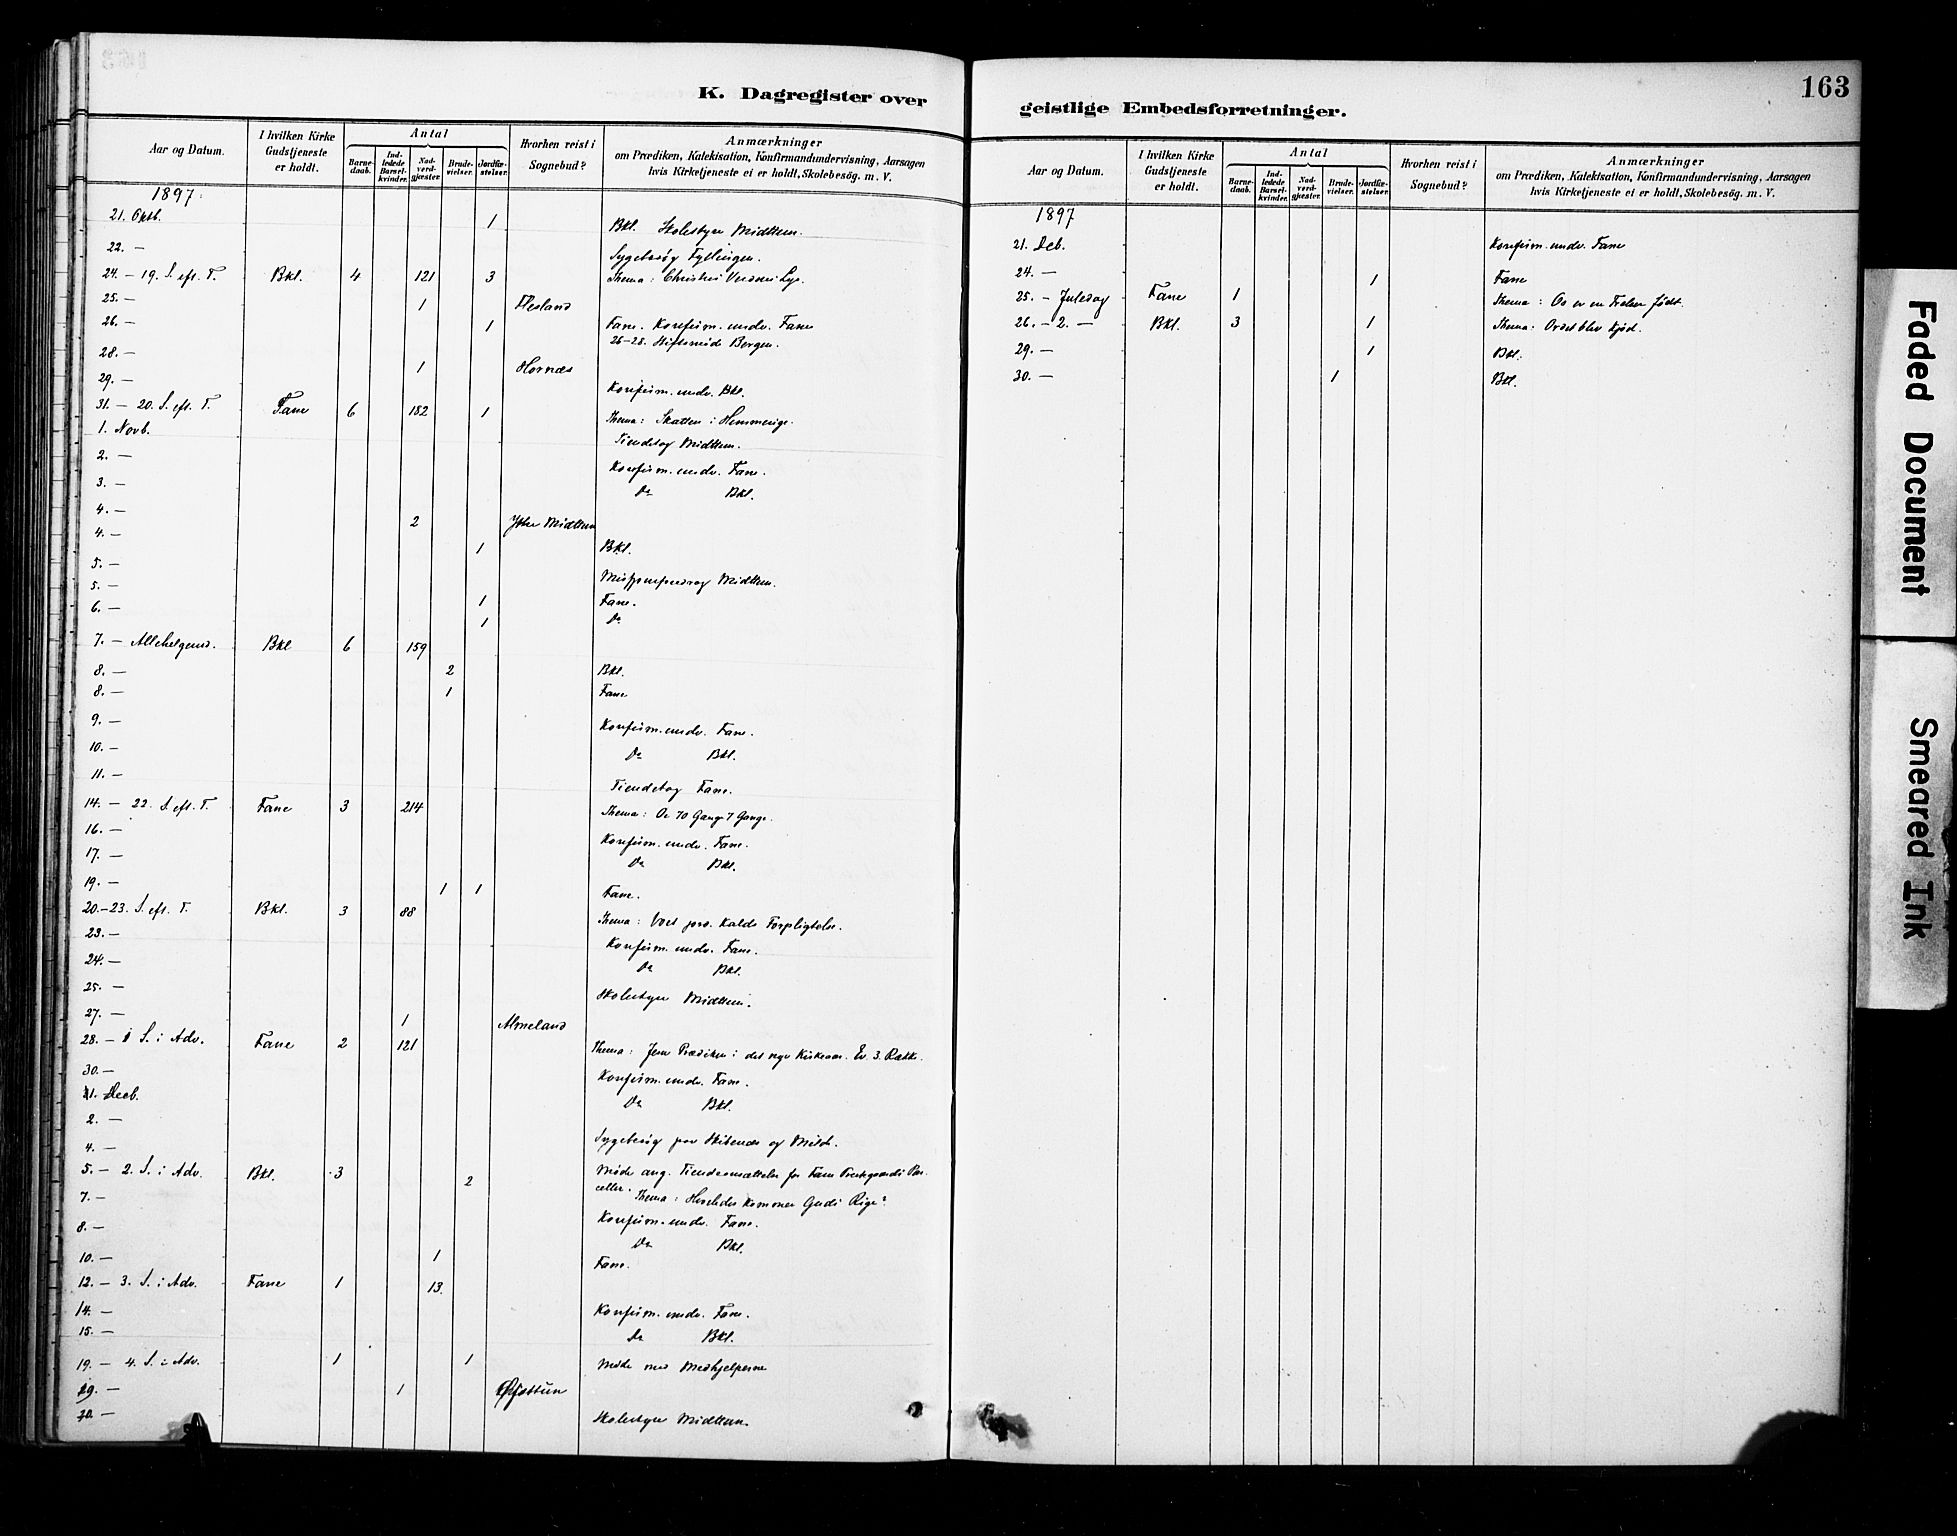 K. Dagregister over
Aar og Datum. I hvilken Kirke Gudstjeneste er holdt. Antal Barne-daab. Ind-ledede Barsel-kvinder. Nad-verd-gjæster. Brude-vielser. Jordfæ-stelser. Hvorhen reist i Sognebud? Anmærkninger om Prædiken, Katekisation, Konfirmandundervisning, Aarsagen hvis Kirketjeneste ei er holdt, Skolebesøg. m. V.
1897.
21. Oktb. 1 Bkl. Skolestyre Midttun.
22. — Sygebesøg Fyllingen.
24. — 19. S. eft. T. Bkl. 4 121 3 Thema: Christus Verdens Lys.
25. — 1 Flesland
26. — 1 Fane. Konfirm. underv. Fane
26-28. Stiftsmøde Bergen.
28. — 1 Hornæs
29. — Konfirm. underv. Bkl.
31. — 20. S. eft. T. Fane 6 182 1 Thema: Skatten i Himmerige.
1. Novb. Tiendetag Midttun.
2. — Konfirm. underv. Fane.
3. — Do Bkl.
4. — 2 Ytre Midttun
4. — 1 Bkl.
5. —
5. — Midttun.
6. — 1 Fane.
1 Do
7. — Allehelgensd. Bkl 6 159
8. — 2 Bkl.
8. — 1 Fane
9. — Konfirm. underv. Fane.
10. — Do Bkl.
11. — Tiendetag Fane.
14. — 22. S. eft. T. Fane 3 214 Thema: De 70 Gange 7 Gange.
16. — Konfirm. underv. Fane.
17. — Do Bkl.
19. — 1 1 Fane.
20. — 23. S. eft. T. Bkl. 3 88 Thema: Vort Kalds Forpligtelse.
23. — Konfirm. underv. Fane.
24. — Do Bkl.
25. — Skolestyre Midttun.
27. — 1 Almeland
28. — 1 S. i Adv. Fane 2 121 Thema: Jesu Prædiken i det nye Kirkeaar. Ev. 3. Række.
30. — Konfirm. underv. Fane.
1. Decb. Do Bkl.
2. —
4. — Sygebesøg paa Skibenæs og Mildt.
5. — 2. S. i Adv. Bkl. 3 2 Møde ang. Tiendeansættelse for Fane Prestegaards Par-
celler. Thema: Hvorledes kommer Guds Rige?
7. — Konfirm. underv. Fane.
8. — Do Bkl.
10. — 1 Fane.
12. — 3. S. i Adv. Fane 1 13.
14. — Konfirm. underv. Fane.
15. — Do Bkl.
19. — 4. S. i Adv. 1 1 Møde med Medhjelperne
19. — 1 Øvsttun
20. — Skolestyre Midttun.
geistlige Embedsforretninger.
163
Aar og Datum. I hvilken Kirke Gudstjeneste er holdt. Antal Barne-daab. Ind-ledede Barsel-kvinder. Nad-verd-gjæster. Brude-vielser. Jordfæ-stelser. Hvorhen reist i Sognebud? Anmærkninger om Prædiken, Katekisation, Konfirmandundervisning, Aarsagen hvis Kirketjeneste ei er holdt, Skolebesøg. m. V.
1897
21. Deb. Konfirm. underv. Fane
24. — 1 Fane
25. — Juledag Fane 1 Thema: Os er en Frelser født.
26. — 2. — Bkl. 3 1 Thema: Ordet blev Kjød.
29. — 1 Bkl.
30. — 1 Bkl.
Faded Document
Smeared Ink